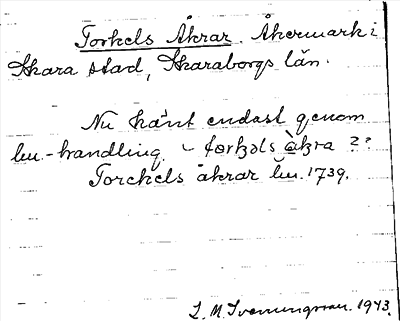 Torkels Åkrar. Åkermark i
Skara stad, Skaraborgs län.
Nu känt endast genom
lm.-handling. torkəls åkra ??
Torckels åkrar lm. 1739.
L. M. Svenungsson. 1943.